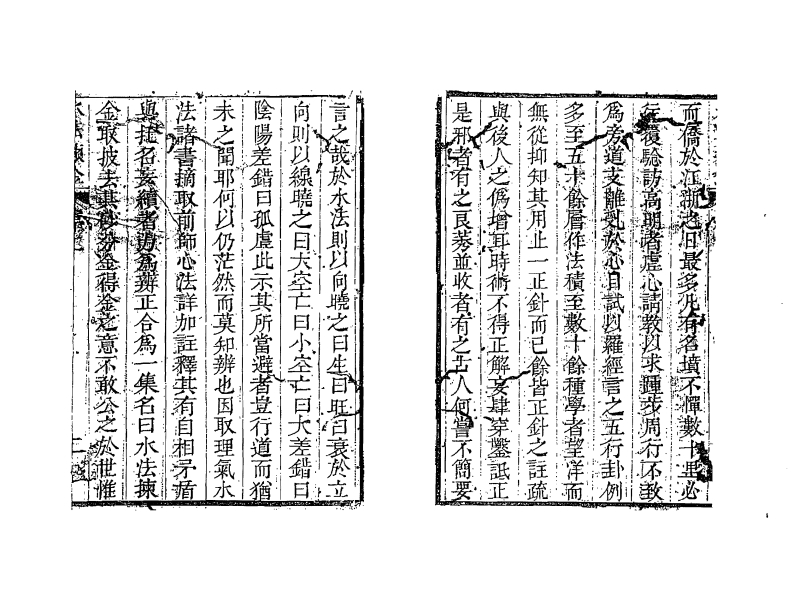 而僑於江浙之日最多凡有名墳不憚數十里必
往覆驗訪高明者虛心請教以求踵步周行不敎
為旁道支離亂於心目試以羅經言之五行卦例
多至五十餘層作法積至數十餘種學者望洋而
無從抑知其用止一正針而已餘皆正針之註疏
與後人之僞增耳時術不得正解妄肆穿鑿詆正
是邪者有之良莠並收者有之古人何嘗不簡要
言之哉於水法則以向曉之曰生曰旺曰衰於立
向則以線曉之曰大空亡曰小空亡曰大差錯曰
陰陽差錯曰孤虛此示其所當避者豈行道而猶
未之聞耶何以仍茫然而莫知辨也因取理氣水
法諸書摘取前師心法詳加註釋其有自相矛盾
與托名妄續者訪為辨正合為一集名曰水法揀
金取披去其砂汾金得金之意不敢公之於世惟
水法揀金
二